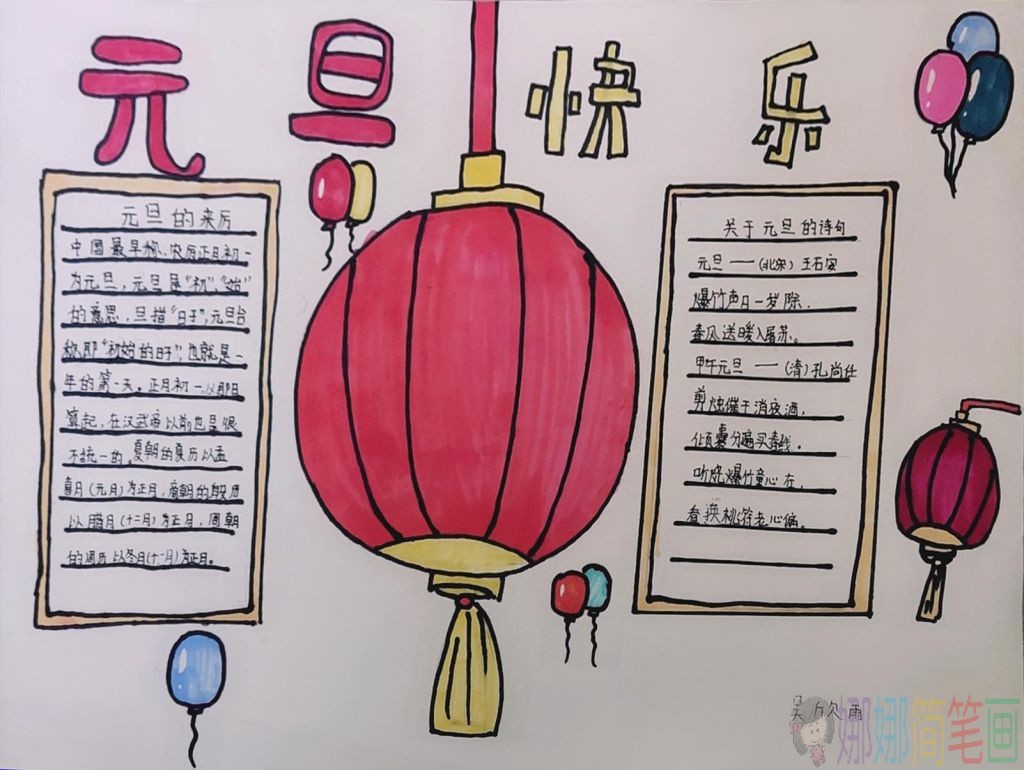 元旦快乐
元旦的来历
中国最早称,农历正月初一
为元旦,元旦是“初”“始”
的意思,旦指“日子”,元旦合
称即“初始的日子”,也就是一
年的第一天。正月初一从即日
算起,在汉武帝以前也是很
不统一的。夏朝的夏历以孟
喜月(元月)为正月,商朝的殷历
以腊月(十二月)为正月,周朝
的周历以冬月(十一月)为正月。
关于元旦的诗句
元旦——(北宋)王石安
爆竹声日一岁除,
春风送暖入屠苏。
甲午元旦——(清)孔尚任
剪烛催干消夜酒,
倾囊分遍买春钱。
听烧爆竹童心在,
看换桃符老心偏。
吴欣雨
娜娜简笔画